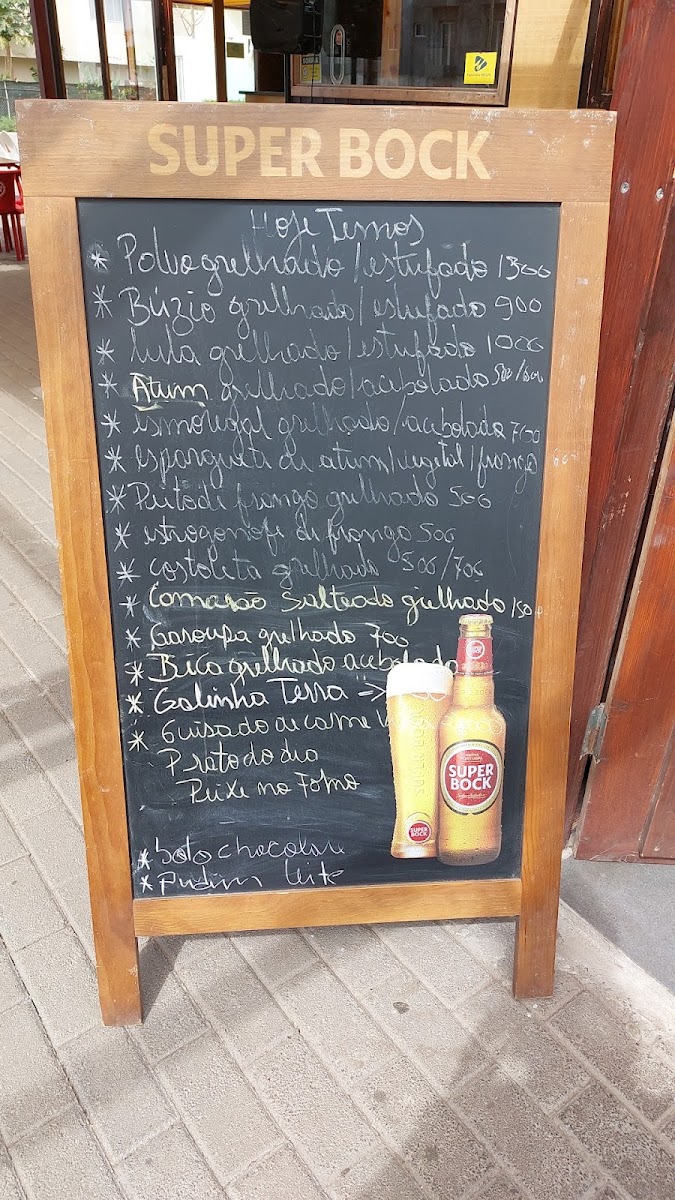 SUPER BOCK
Hoje Temos
* Polvo grelhado/estufado 1300
* Búzio grelhado/estufado 900
* lula grelhado/estufado 1000
* Atum grelhado/acebolado 500/600
* esmoregal grelhado/acebolada 700
* esparguete de atum/vegital/frango
* Peito de frango grelhado 500
* estrogonofe de frango 500
* costoleta grelhada 500/700
* Camarão Salteado grelhado
* Garoupa grelhado 700
* Bica grelhado acebolado
* Galinha Terra =>
* Guisado de carne
Prato do dia
Peixe no Forno
* bolo chocolate
* Pudim leite
SUPER BOCK
SUPER BOCK
SUPER BOCK